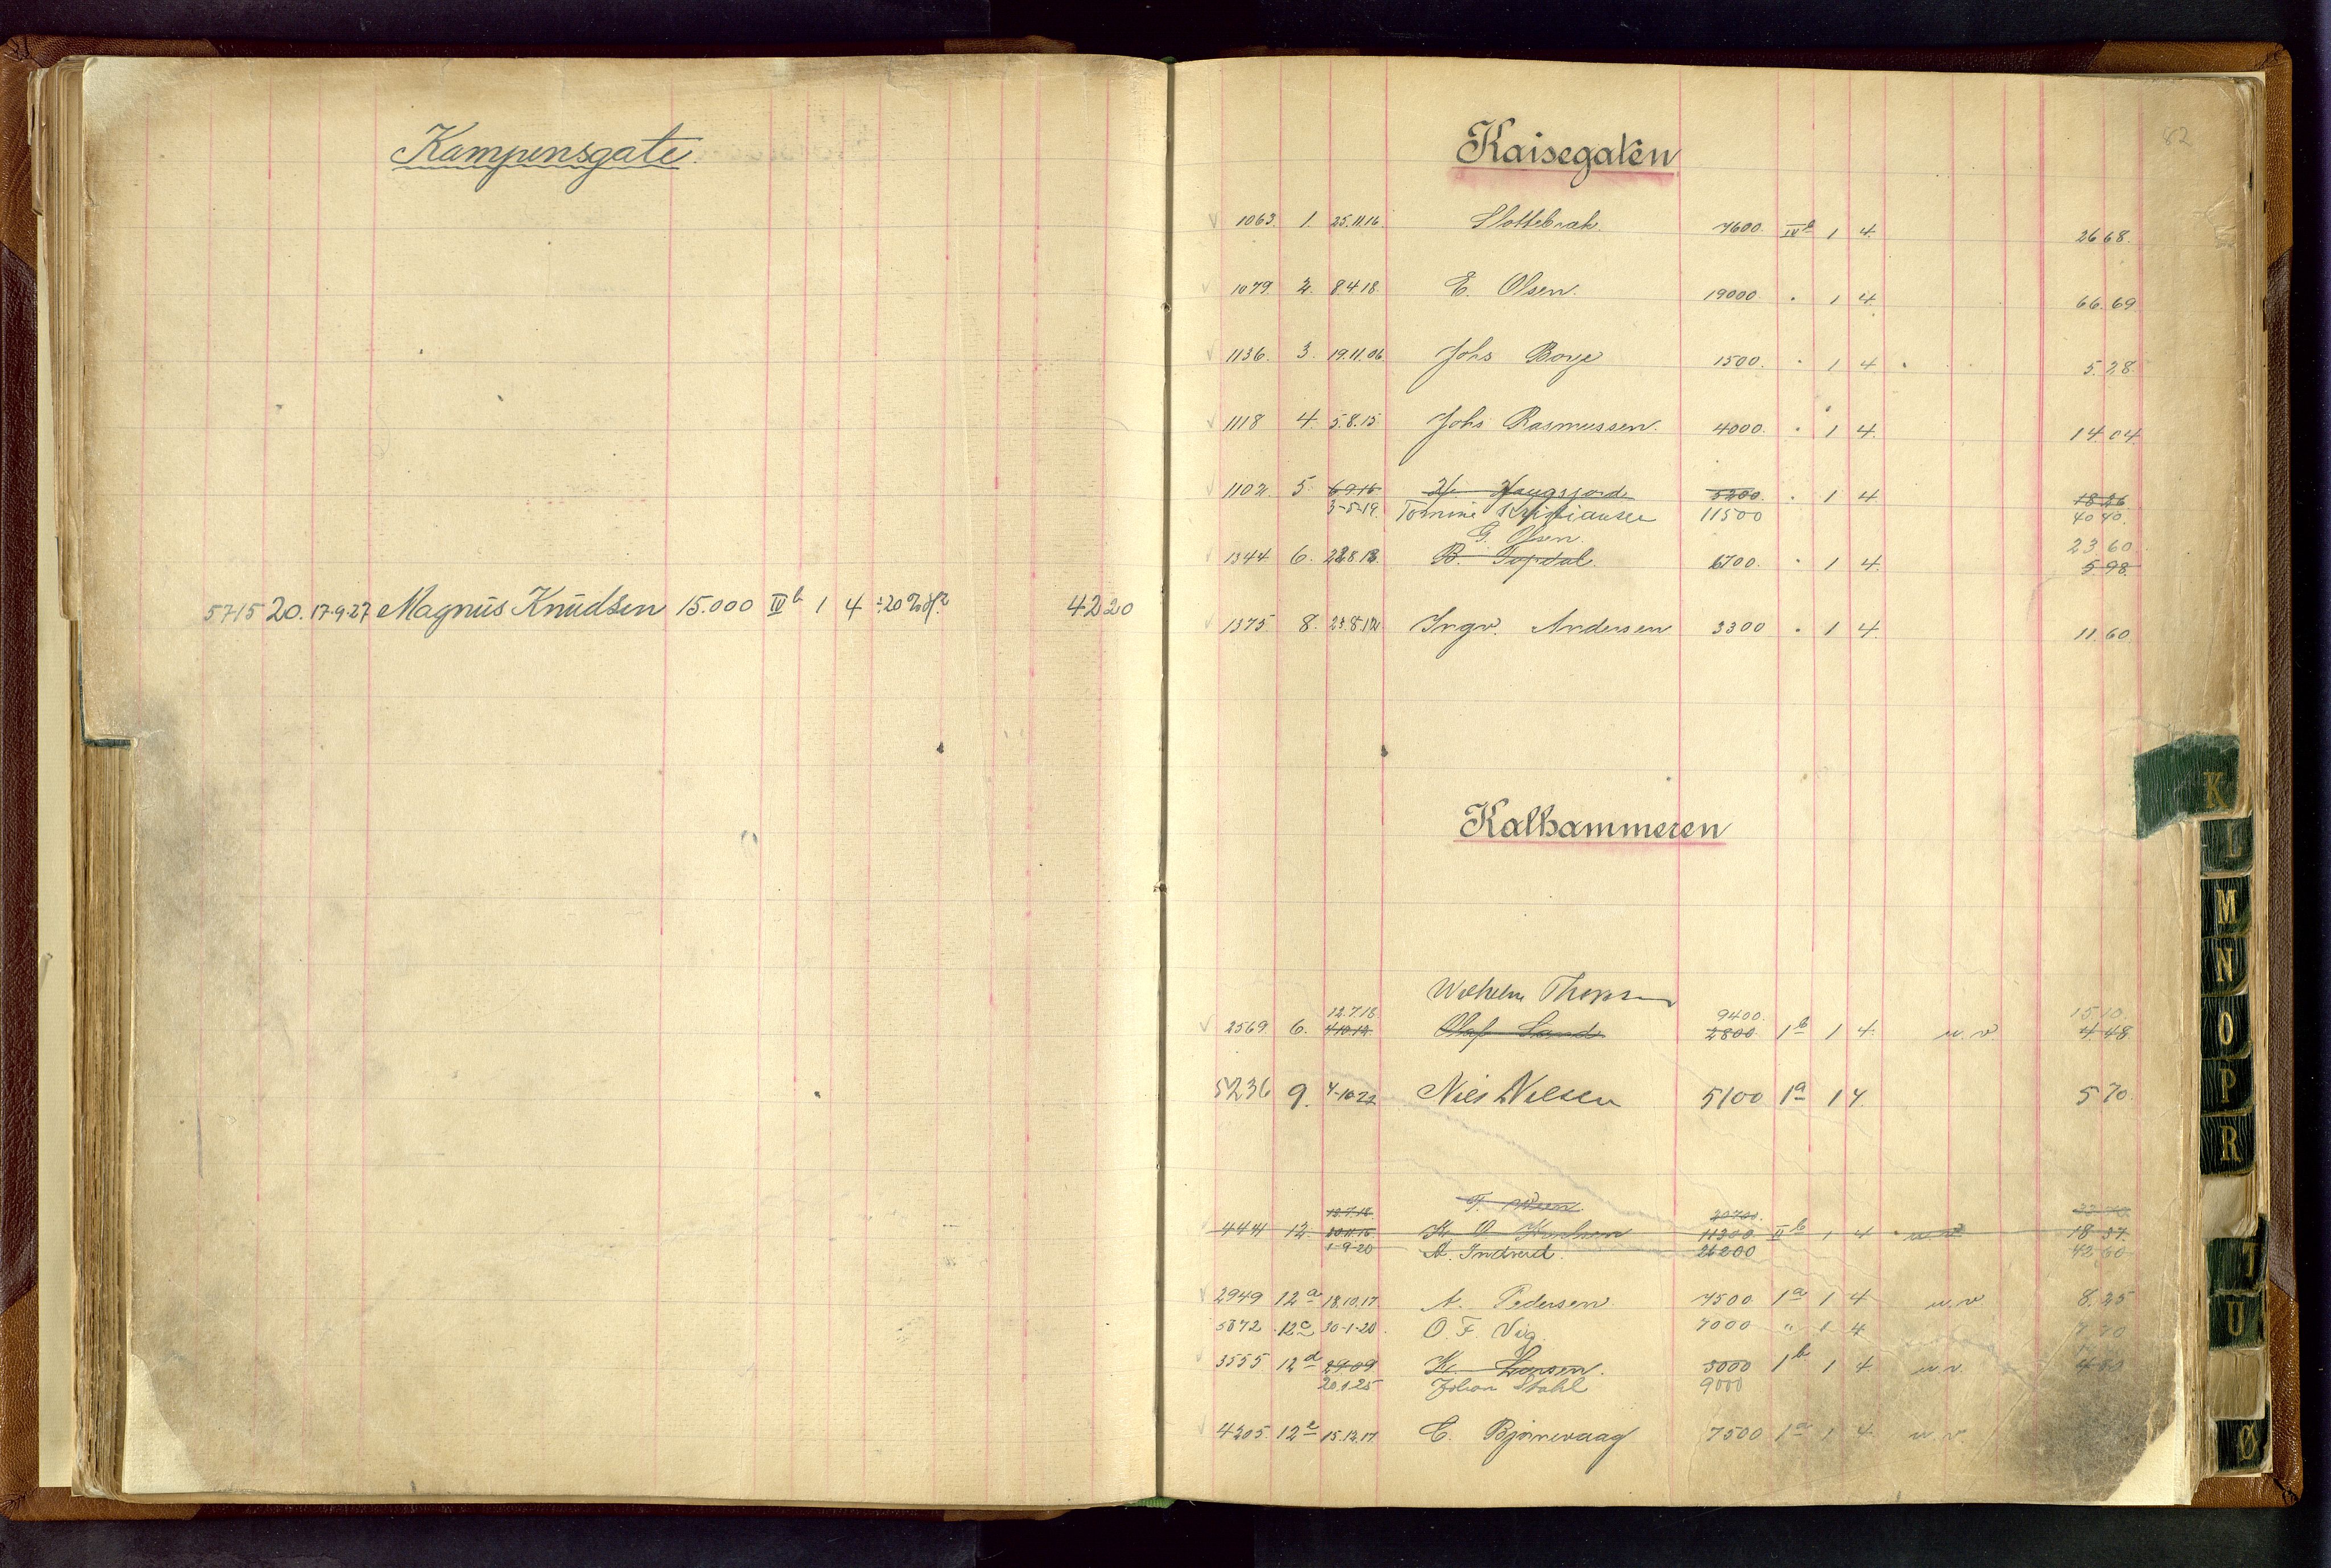 Kampensgate.
5715 20. 17-9-27 Magnus Knudsen 15.000 IVb 1 4 ÷ 20 % 42 20
82
Kaisegaten
1063. 1. 25.11.16. Slottebrak. 7600 IVb 1 4. 26 68.
1079. 2. 8.4.18. E. Olsen. 19000 " 1 4. 66.69
1136. 3. 19.11.06 Johs Borge 1500. " 1 4 5.28
1118 4. 5.8.15 Johs Rasmussen. 4000. " 1 4. 14.04
1102. 5. 6.9.15 H. Haugsgord 5200. " 1 4 18.26
3-5-19. Tomine Kristiansen 11500 40 40.
G. Olsen. 23.60.
1344 6. 28.8.18. B. Topdal. 6700. " 1 4. 5.98.
1375. 8. 23.8.12 Ingv. Andersen 3300 " 1 4. 11.60
Kalhammeren
Wilhelm Thorsen
12.7.18. 9400. 15.10.
2569 6. 4.10.12. Olaf Sande 2800. 1b 1 4. u.v. 4.48.
5236 9. 4-10-22 Nils Nilsen 5100 1a 1 4. 5 70.
12.7.18. 20700.
4441 12. 20.11.16 11300 IIb 1 4 u.v. 18.37.
1-9-20 A. Indreid. 26200 42 60
2949 12a 18.10.17. A. Pedersen. 7500 1a 1 4 u.v. 8.25
5072 12c 30-1-20. O. F. Vig. 7000 " 1 4 7.70
3555 12d 29.09 K. Larsen. 3000 1b 1 4 u.v. 4.80
20.1.25 Johan Stahl 9000
4205. 12e 15.12.17 E. Bjørnevaag 7500 1a 1 4. u.v.
K
L
M
N
O
P
R
T
U
Ø